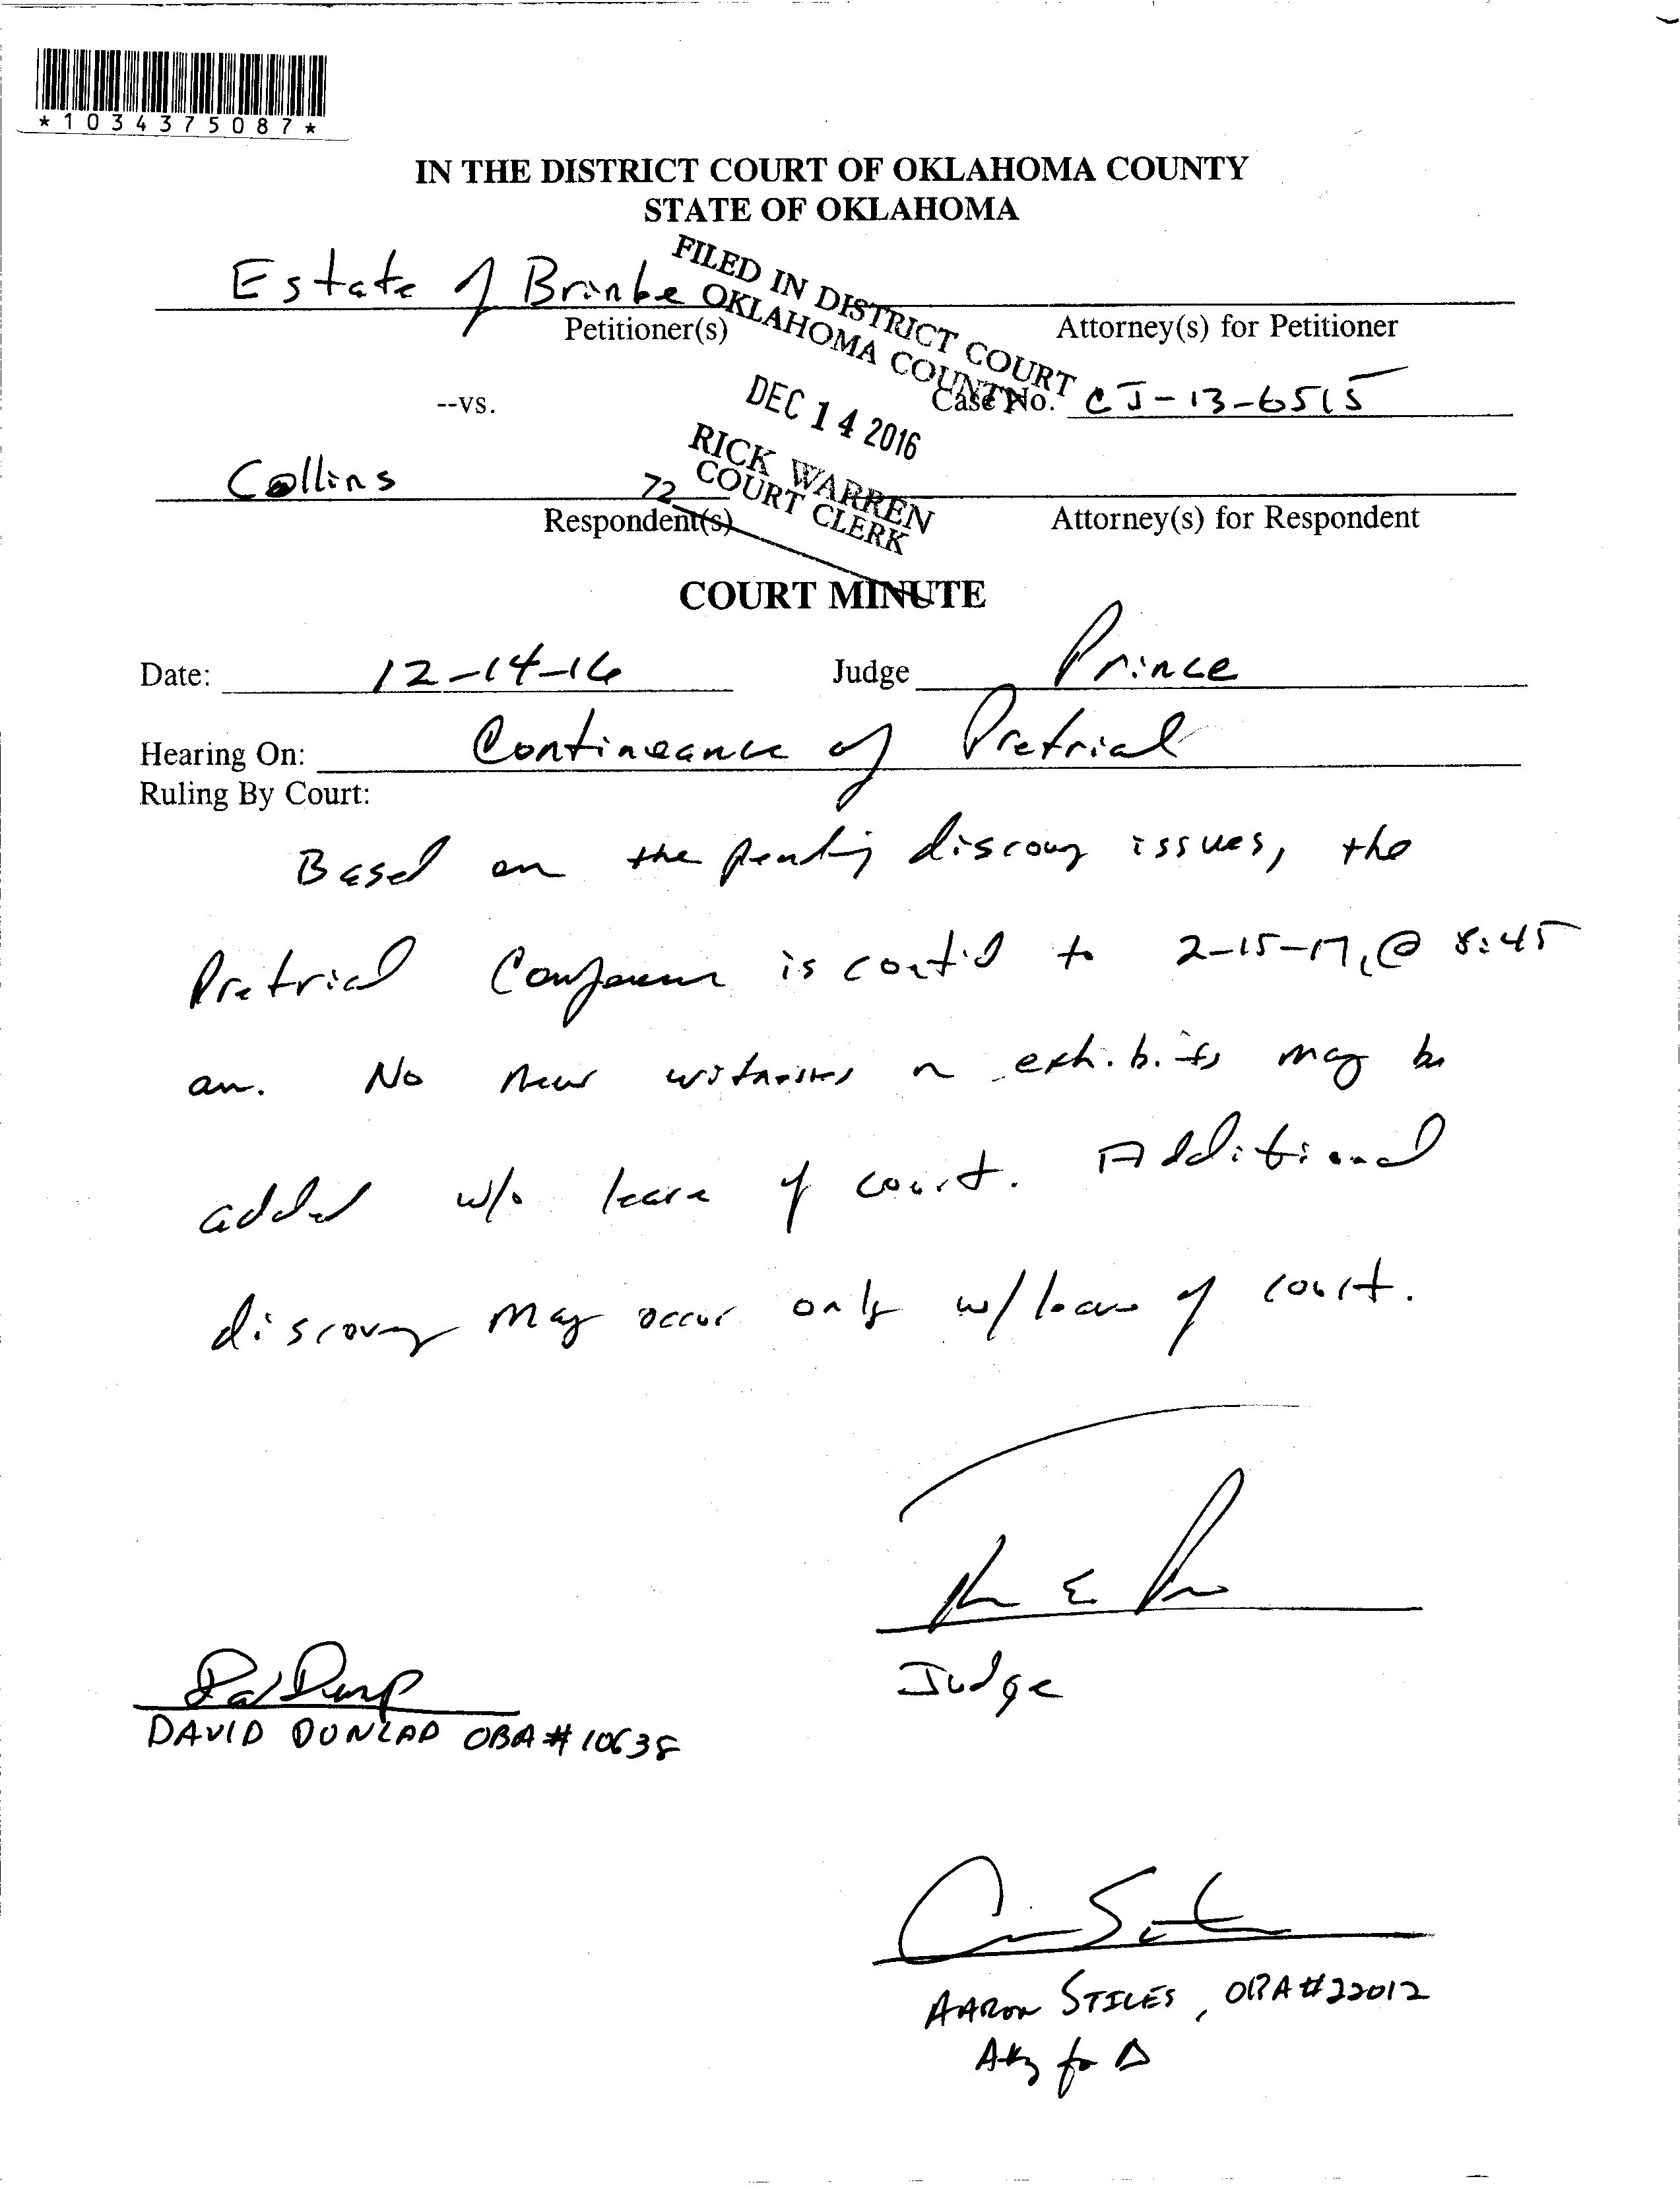 *1034375087*
IN THE DISTRICT COURT OF OKLAHOMA COUNTY
STATE OF OKLAHOMA
FILED IN DISTRICT COURT
OKLAHOMA COUNTY
Estate of
Petitioner(s)
Attorney(s) for Petitioner
DEC 14 2016
--vs.
Case No. CJ-13-6515
RICK WARREN
COURT CLERK
Collins
72
Respondent(s)
Attorney(s) for Respondent
COURT MINUTE
Date: 12-14-16 Judge Prince
Hearing On: Continuance of Pretrial
Ruling By Court:
Based on the pending discovery issues, the
Pretrial Conference is cont'd to 2-15-17, @ 8:45
am. No new witnesses or exhibits may be
added w/o leave of court. Additional
discovery may occur only w/leave of court.
Judge
DAVID DUNLAP OBA# 10638
AARON STILES, OBA#22012
Atty for Δ